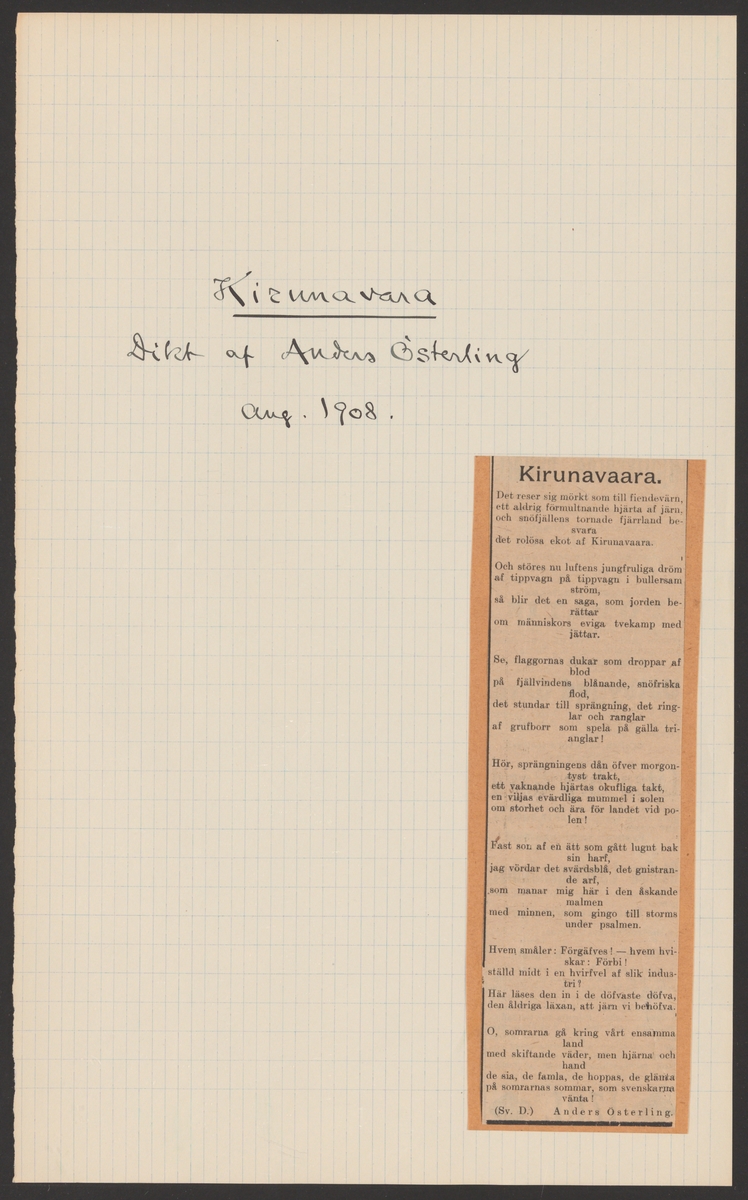 Kirunavara
Dikt af Anders Österling
Aug. 1908.
Kirunavaara.
Det reser sig mörkt som till fiendevärn,
ett aldrig förmultnande hjärta af järn,
och snöfjällens tornade fjärrland be-
svara
det rolösa ekot af Kirunavaara.
Och störes nu luftens jungfruliga dröm
af tippvagn på tippvagn i bullersam
ström,
så blir det en saga, som jorden be-
rättar
om människors eviga tvekamp med
jättar.
Se, flaggornas dukar som droppar af
blod
på fjällvindens blånande, snöfriska
flod,
det stundar till sprängning, det ring-
lar och ranglar
af grufborr som spela på gälla tri-
anglar!
Hör, sprängningens dån öfver morgon-
tyst trakt,
ett vaknande hjärtas okufliga takt,
en viljas evärdliga mummel i solen
om storhet och ära för landet vid po-
len!
Fast son af en ätt som gått lugnt bak
sin harf,
jag vördar det svärdsblå, det gnistran-
de arf,
som manar mig här i den åskande
malmen
med minnen, som gingo till storms
under psalmen.
Hvem småler: Förgäfves! — hvem hvi-
skar: Förbi!
ställd midt i en hvirfvel af slik indus-
tri?
Här läses den in i de döfvaste döfva,
den åldriga läxan, att järn vi behöfva.
O, somrarna gå kring vårt ensamma
land
med skiftande väder, men hjärna och
hand
de sia, de famla, de hoppas, de glämta
på somrarnas sommar, som svenskarna
vänta!
(Sv. D.) Anders Österling.